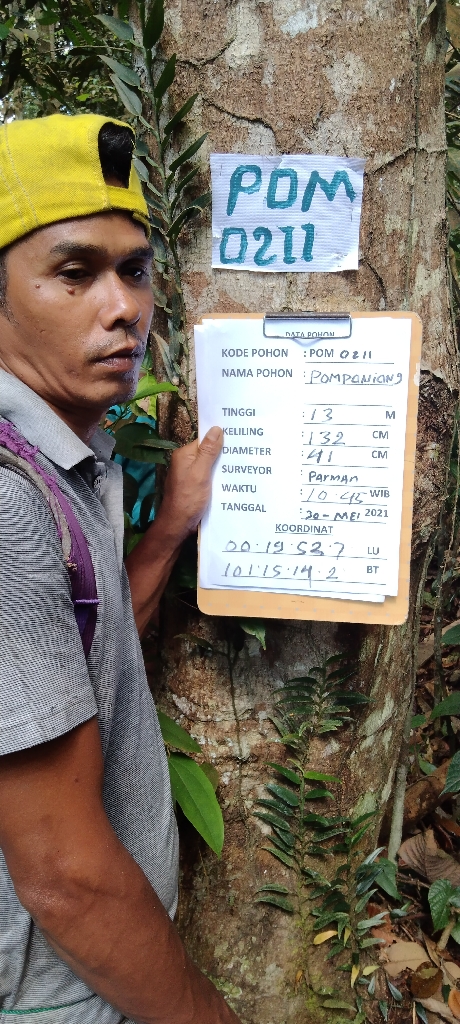 POM
0211
DATA POHON
KODE POHON : POM 0211
NAMA POHON : POMPONIONG
TINGGI : 13 M
KELILING : 132 CM
DIAMETER : 41 CM
SURVEYOR : Parman
WAKTU : 10.45 WIB
TANGGAL : 20-MEI 2021
KOORDINAT
00.19.53.7 LU
101.15.14.2 BT